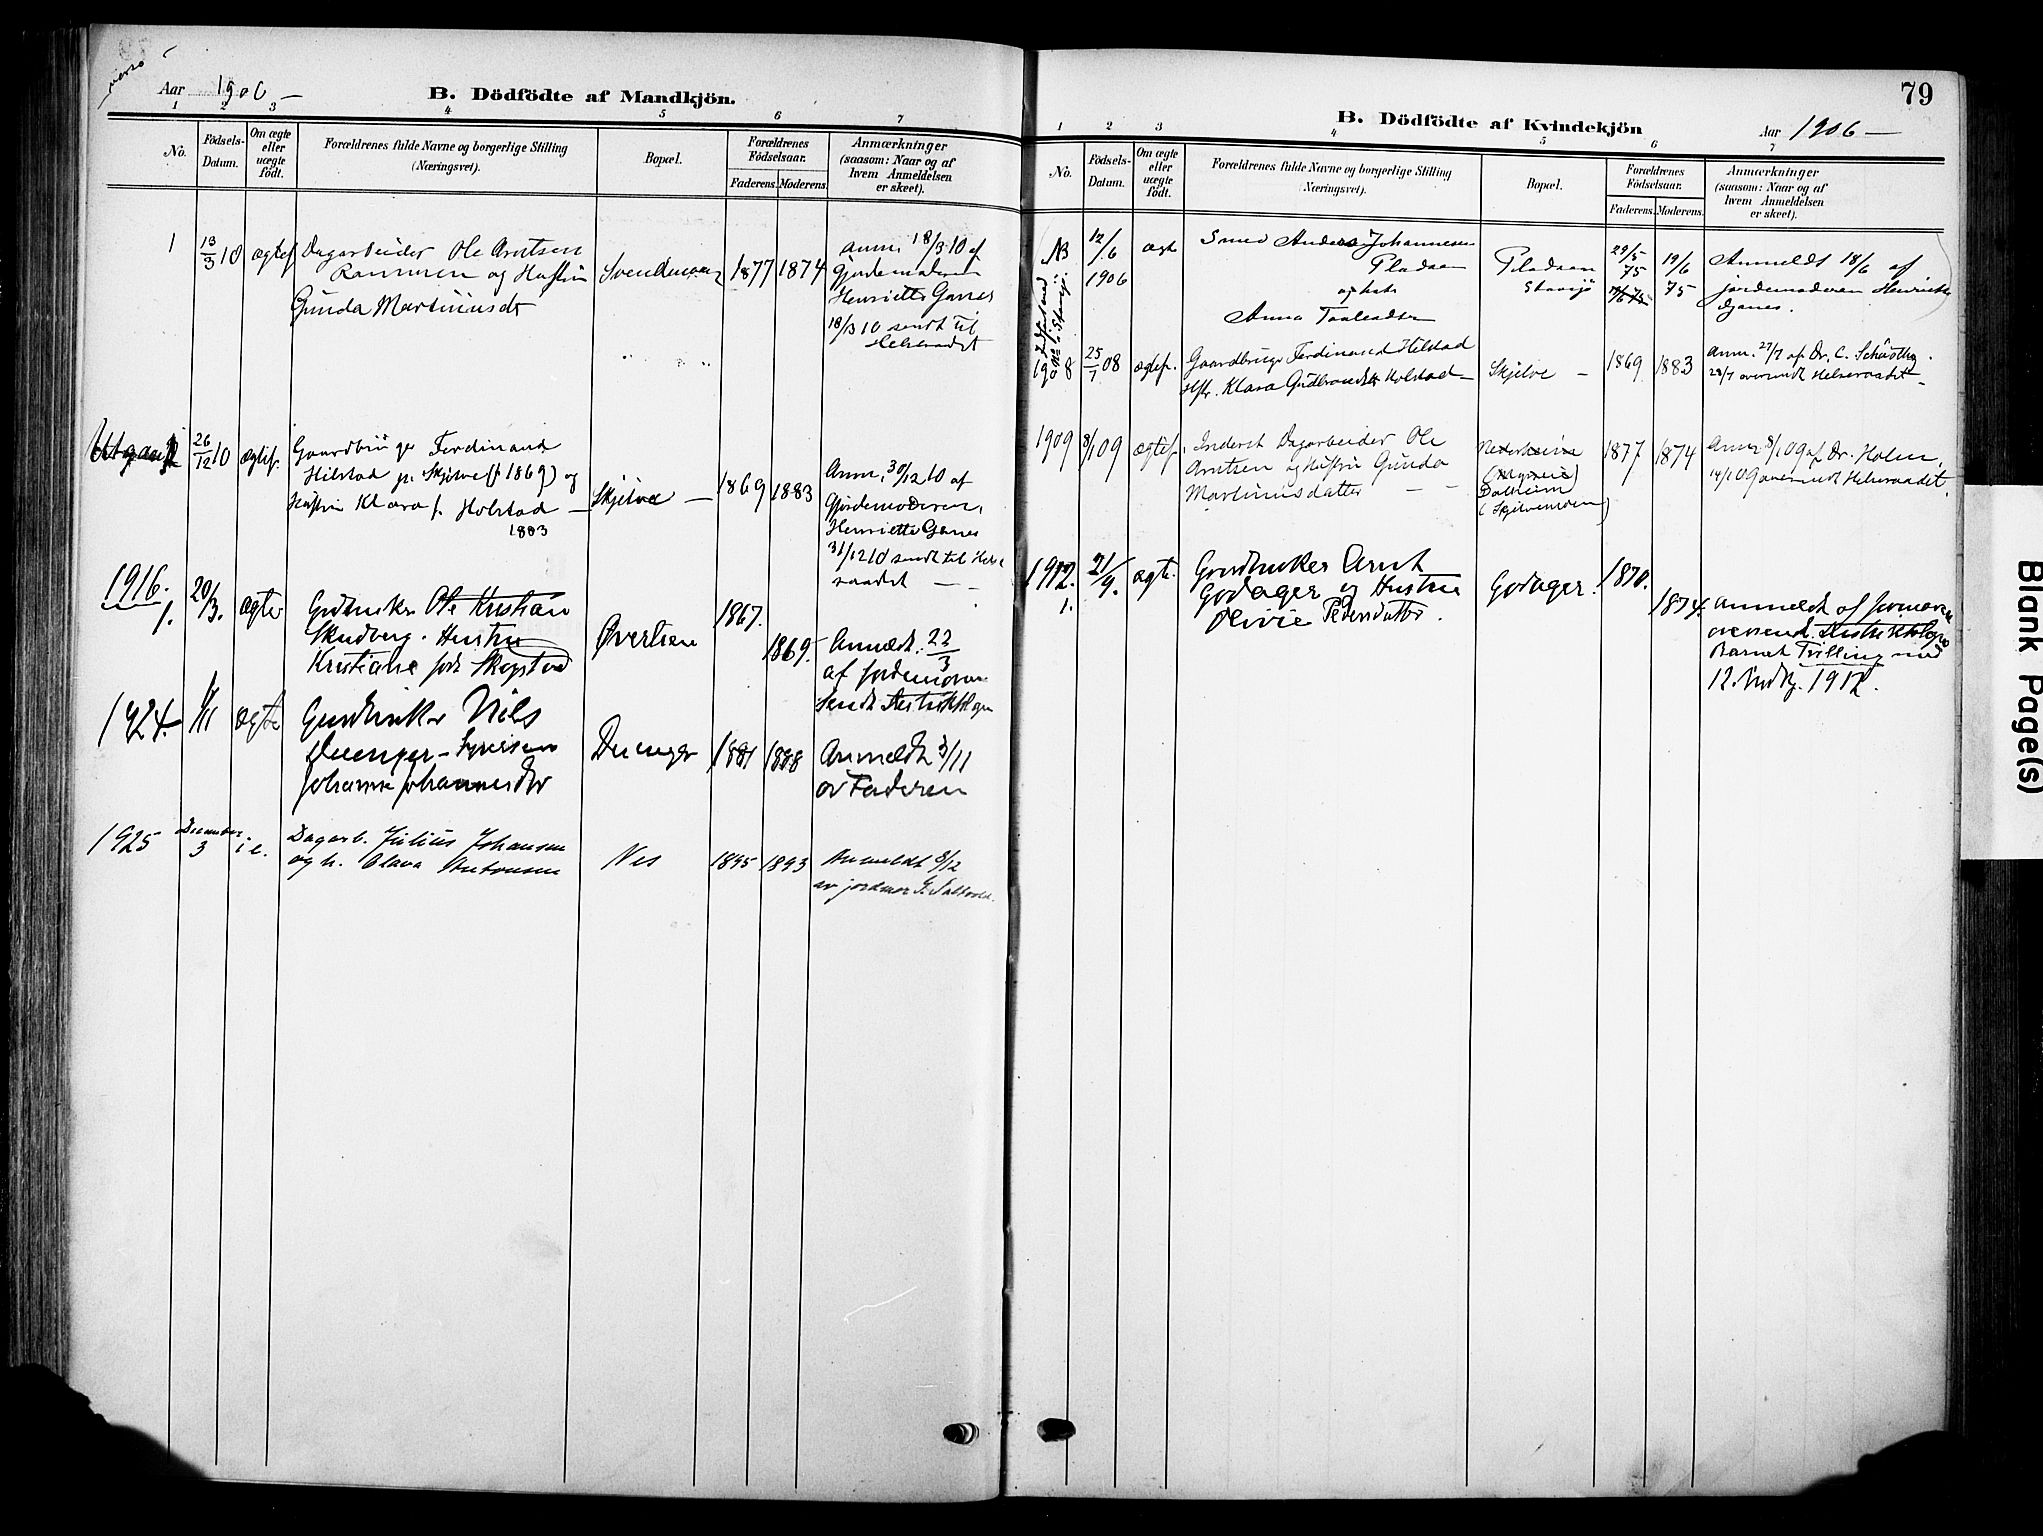 Aar 1906 –
B. Dödfödte af Mandkjön.
1 2 3 4 5 6 7
No.
Födsels-Datum.
Om ægte eller uægte födt.
Forældrenes fulde Navne og borgerlige Stilling
(Næringsvei).
Bopæl.
Forældrenes Födselsaar.
Faderens. Moderens.
Anmærkninger
(saasom: Naar og af
hvem Anmeldelsen
er skeet).
1 13/3 10 ægtef Dagarbeider Ole Arntsen
og Hustru
Gunda Martinusdr
1877 1874
Anm. 18/3 10 af
Gjordemoderen
Henriette Ganes
18/3 10 sendt til
Helseraadet
26/12 10 ægtef. Gaardbruger Ferdinand
Hilstad p. Skjelve (f 1869) og
Hustru Klara f. Holstad
1883
Skjelve – 1869 1883
Anm. 30/12 10 af
Gjordemoderen
Henriette Ganes
31/12 10 sendt til Helse
raadet –
1916.
1. 20/3. ægte Grdbruker Ole Kristian
Skudberg. Hustru
Kristiane født Skogstad
Øverlien
1867.
1869.
Anmeldt 22/3
af jordemoren
Sendt Distriktslægen
1924. 1/11 ægte Gardbruker Nils
Johanne Johannesdtr
1881 1888
Anmeldt 3/11
av Faderen
1925 December 3 i e. Dagarb. Julius Johansen
og h. Olava Antonsen
Nes 1895 1893
Anmeldt 8/12
av jordmor
79
B. Dödfödte af Kvindekjön
Aar 1906 –
1 2 3 4 5 6 7
No.
Födsels-Datum.
Om ægte eller uægte födt.
Forældrenes fulde Navne og borgerlige Stilling
(Næringsvei).
Bopæl.
Forældrenes Födselsaar.
Faderens. Moderens.
Anmærkninger
(saasom: Naar og af
hvem Anmeldelsen
er skeet).
NB 12/6 1906 ægte Smed Anders Johannesen
Pladsen
og hustru
Anna
Pladsen
Stavsjø
29/5 75 19/6 75
Anmeldt 18/6 af
jordemoderen Henriette
Ganes.
1908 25/7 08 ægtef. Gaardbruger Ferdinand Hilstad
Hstr. Klara Gudbrandsdr Holstad –
Skjelve – 1869 1883
Anm. 27/7 af Dr. C.
28/7 oversendt Helseraadet –
1909 8/1 09 ægtef. Inderst Dagarbeider Ole
Arntsen og Hustru Gunda
Martinusdatter – –
Dalheim
(Skjelvemoen)
1877 1874
Anm. 8/1 09 af Dr. Holm,
14/1 09 oversendt Helseraadet.
1912.
1. 21/9. ægte. Gardbruker Arnt
Godager og Hustru
Olivie Pedersdatter.
Godager. 1870.
1874.
Anmeldt af jormoren
oversendt Distriktslægen
Barnet Tvilling med
12. 1912.
Blank Page(s)